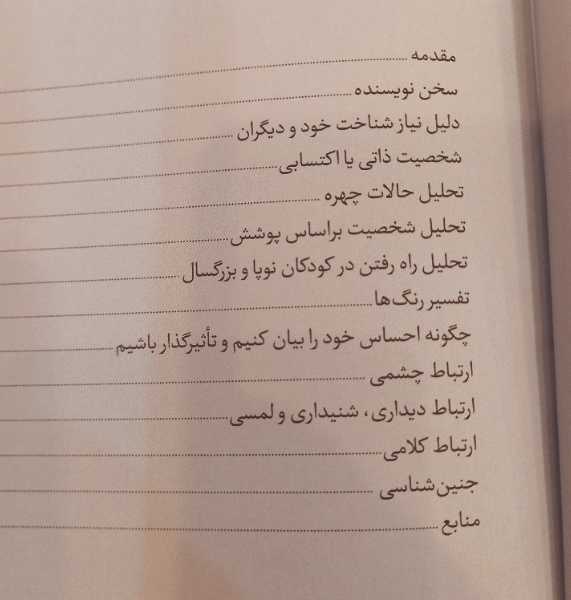 مقدمه
سخن نویسنده
دلیل نیاز شناخت خود و دیگران
شخصیت ذاتی یا اکتسابی
تحلیل حالات چهره
تحلیل شخصیت براساس پوشش
تحلیل راه رفتن در کودکان نوپا و بزرگسال
تفسیر رنگ‌ها
چگونه احساس خود را بیان کنیم و تأثیرگذار باشیم
ارتباط چشمی
ارتباط دیداری، شنیداری و لمسی
ارتباط کلامی
جنین‌شناسی
منابع